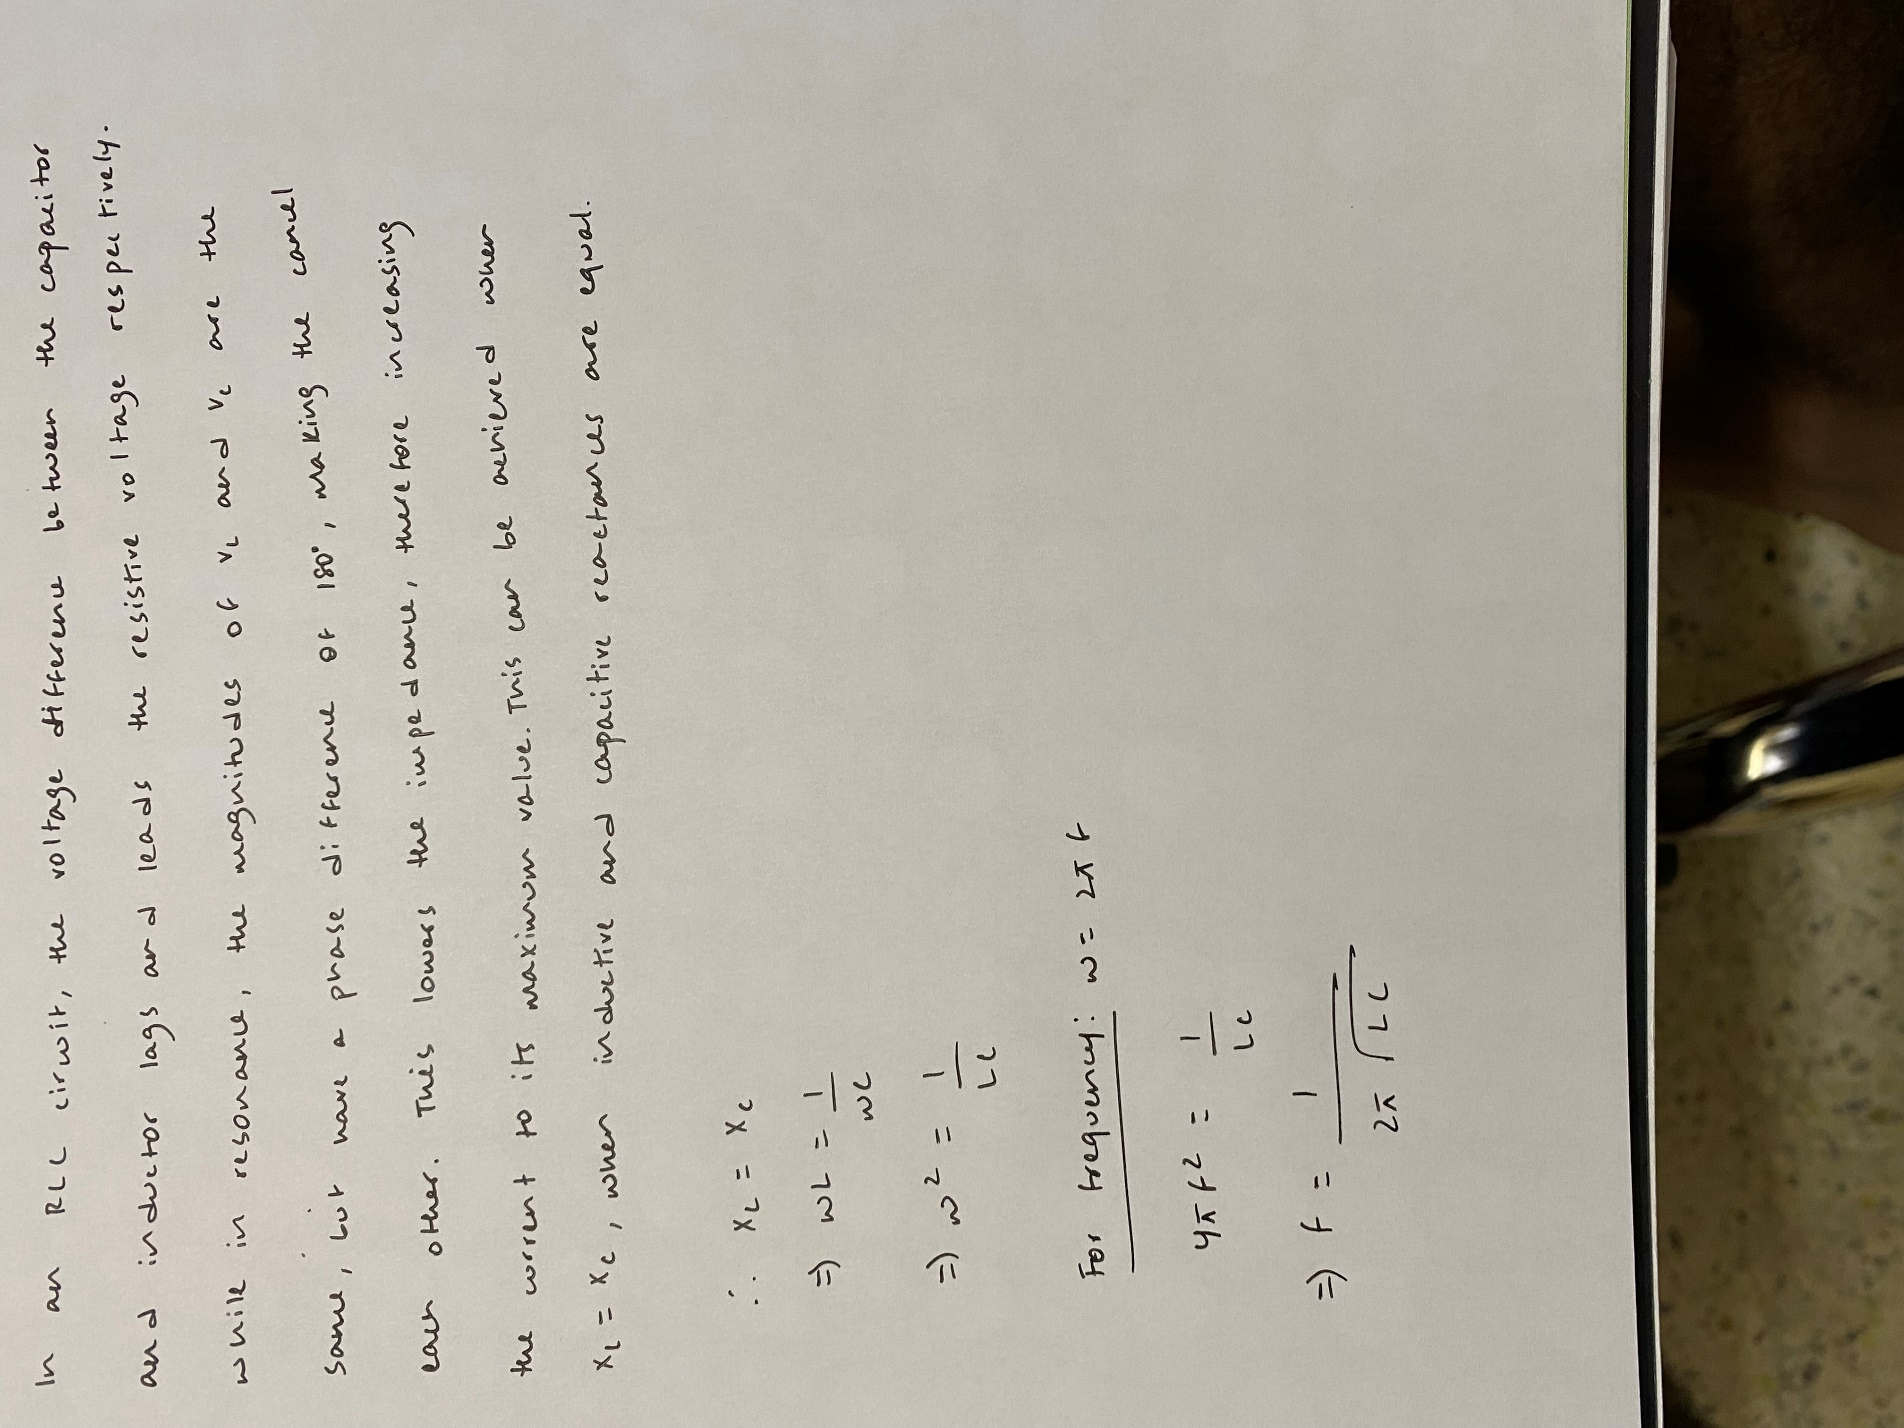 In an RLC circuit, the voltage difference between the capacitor
and inductor lags and leads the resistive voltage respectively.
while in resonance, the magnitudes of VL and Vc are the
same, but have a phase difference of 180°, making the cancel
each other. This lowers the impedance, therefore increasing
the current to its maximum value. This can be achieved when
XL = Xc, when inductive and capacitive reactances are equal.
∴ XL = Xc
=) ωL = 1/ωC
=) ω² = 1/LC
For frequency: ω = 2πf
4πf² = 1/LC
=) f = 1/2π√LC